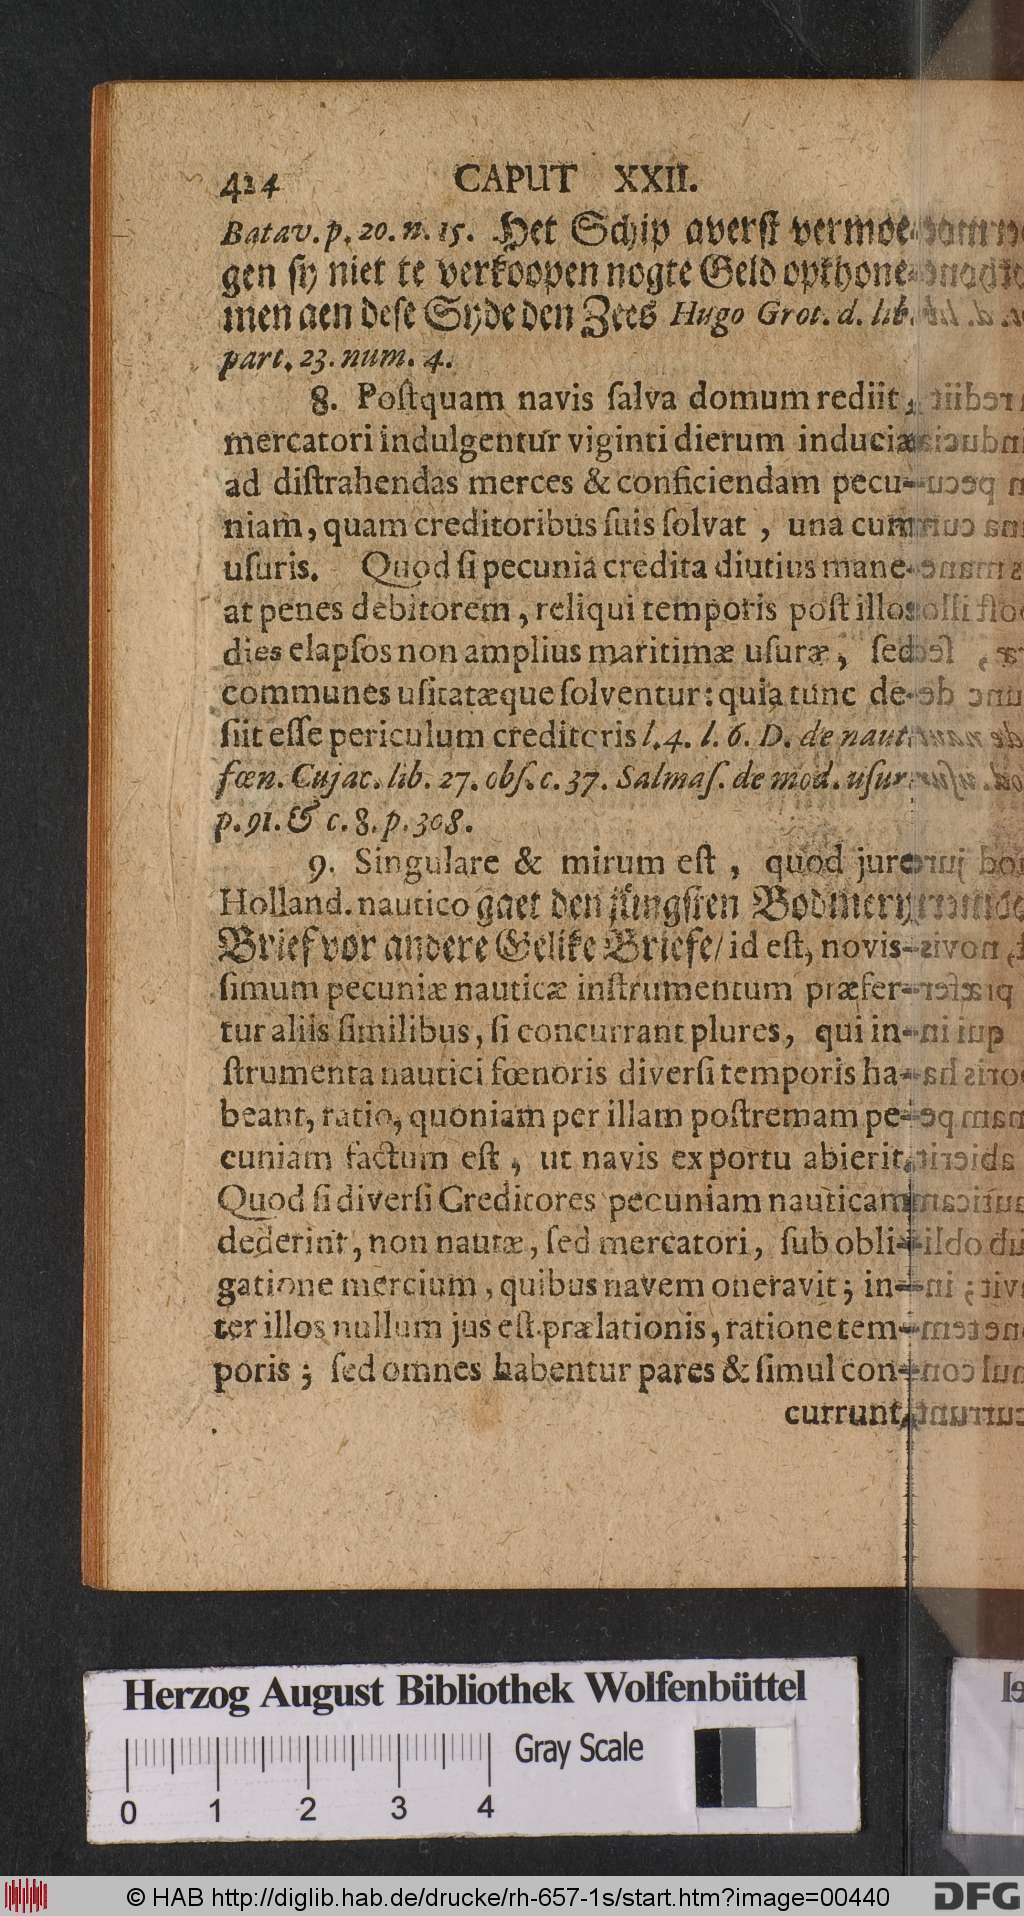 424 CAPUT XXII.
Batav. p. 20. n. 15. Het Schip averſt vermoe-
gen ſy niet te verkoopen nogte Geld opthone-
men aen deſe Syde den Zees Hugo Grot. d. lib.
part. 23. num. 4.
8. Poſtquam navis ſalva domum rediit,
mercatori indulgentur viginti dierum induciæ
ad diſtrahendas merces & conficiendam pecu-
niam, quam creditoribus ſuis ſolvat, una cum
uſuris. Quod ſi pecunia credita diutius mane-
at penes debitorem, reliqui temporis poſt illos
dies elapſos non amplius maritimæ uſuræ, ſed
communes uſitatæque ſolventur: quia tunc de-
ſiit eſſe periculum creditoris l. 4. l. 6. D. de naut.
fœn. Cujac. lib. 27. obſ. c. 37. Salmaſ. de mod. uſur.
p. 91. & c. 8. p. 308.
9. Singulare & mirum eſt, quod jure
Holland. nautico gaet den jüngſten Bodmery
Brief vor andere Gelike Briefe/ id eſt, novis-
ſimum pecuniæ nauticæ inſtrumentum præfer-
tur aliis ſimilibus, ſi concurrant plures, qui in-
ſtrumenta nautici fœnoris diverſi temporis ha-
beant, ratio, quoniam per illam poſtremam pe-
cuniam factum eſt, ut navis ex portu abierit.
Quod ſi diverſi Creditores pecuniam nauticam
dederint, non nautæ, ſed mercatori, ſub obli-
gatione mercium, quibus navem oneravit; in-
ter illos nullum jus eſt prælationis, ratione tem-
poris; ſed omnes habentur pares & ſimul con-
currunt,
Herzog August Bibliothek Wolfenbüttel
Gray Scale
0 1 2 3 4
© HAB http://diglib.hab.de/drucke/rh-657-1s/start.htm?image=00440
DFG